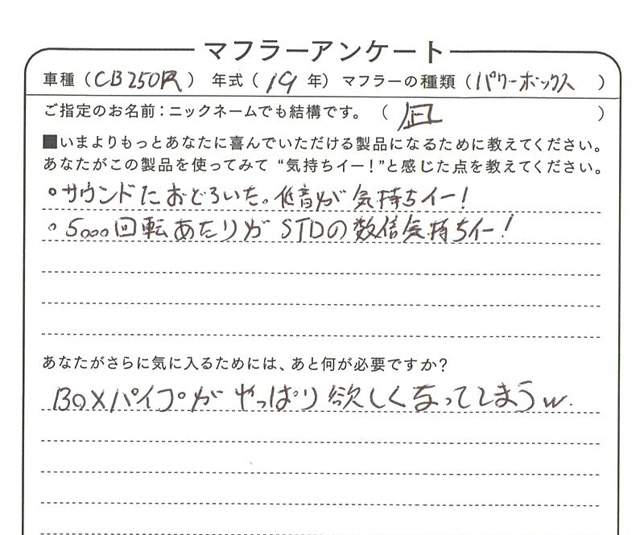 マフラーアンケート
車種（CB250R） 年式（19年）マフラーの種類（パワーボックス）
ご指定のお名前：ニックネームでも結構です。（凪）
■いまよりもっとあなたに喜んでいただける製品になるために教えてください。
あなたがこの製品を使ってみて“気持ちイー！”と感じた点を教えてください。
・サウンドにおどろいた。低音が気持ちイー！
・5000回転あたりがSTDの数倍気持ちイー！
あなたがさらに気に入るためには、あと何が必要ですか？
BOXパイプがやっぱり欲しくなってしまうw.